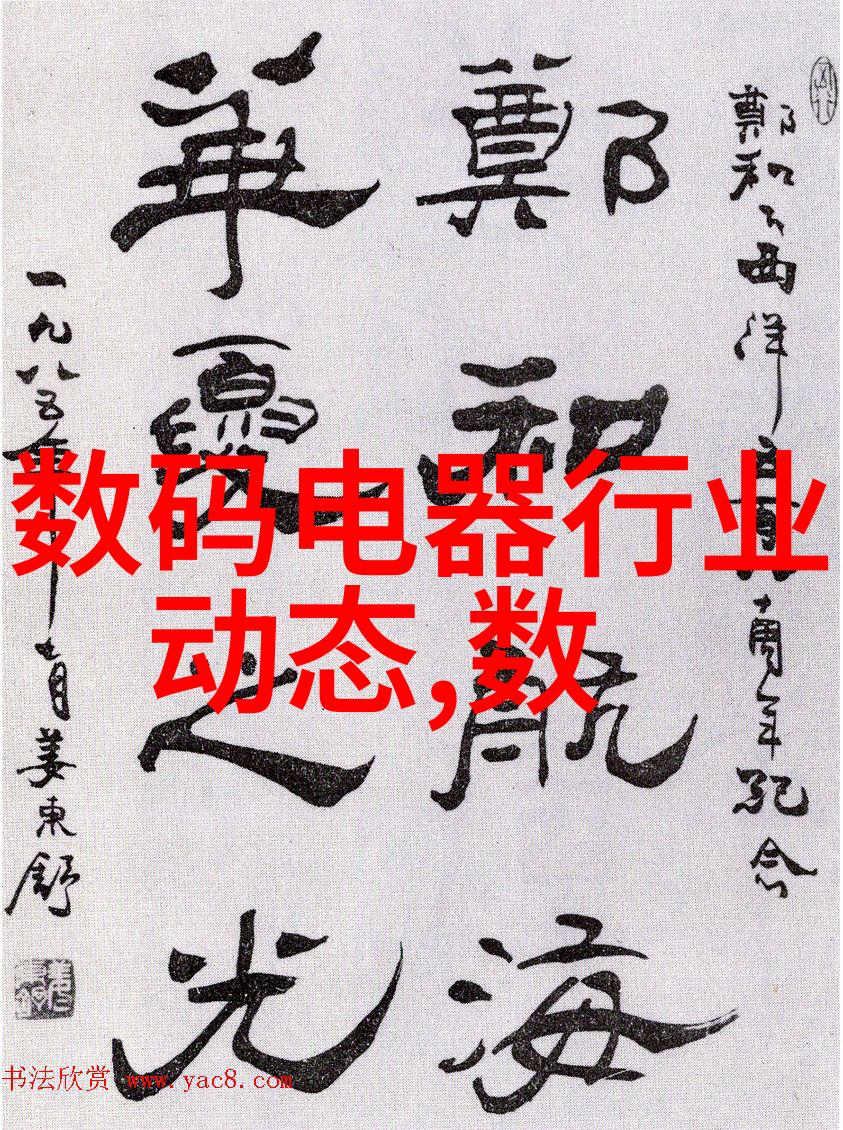 鄭和下西洋五百八十周年紀念
鄭和航海
華夏之光
一九八五年
姜東舒
数码电器行业
动态,数
书法欣赏 www.yac8.com